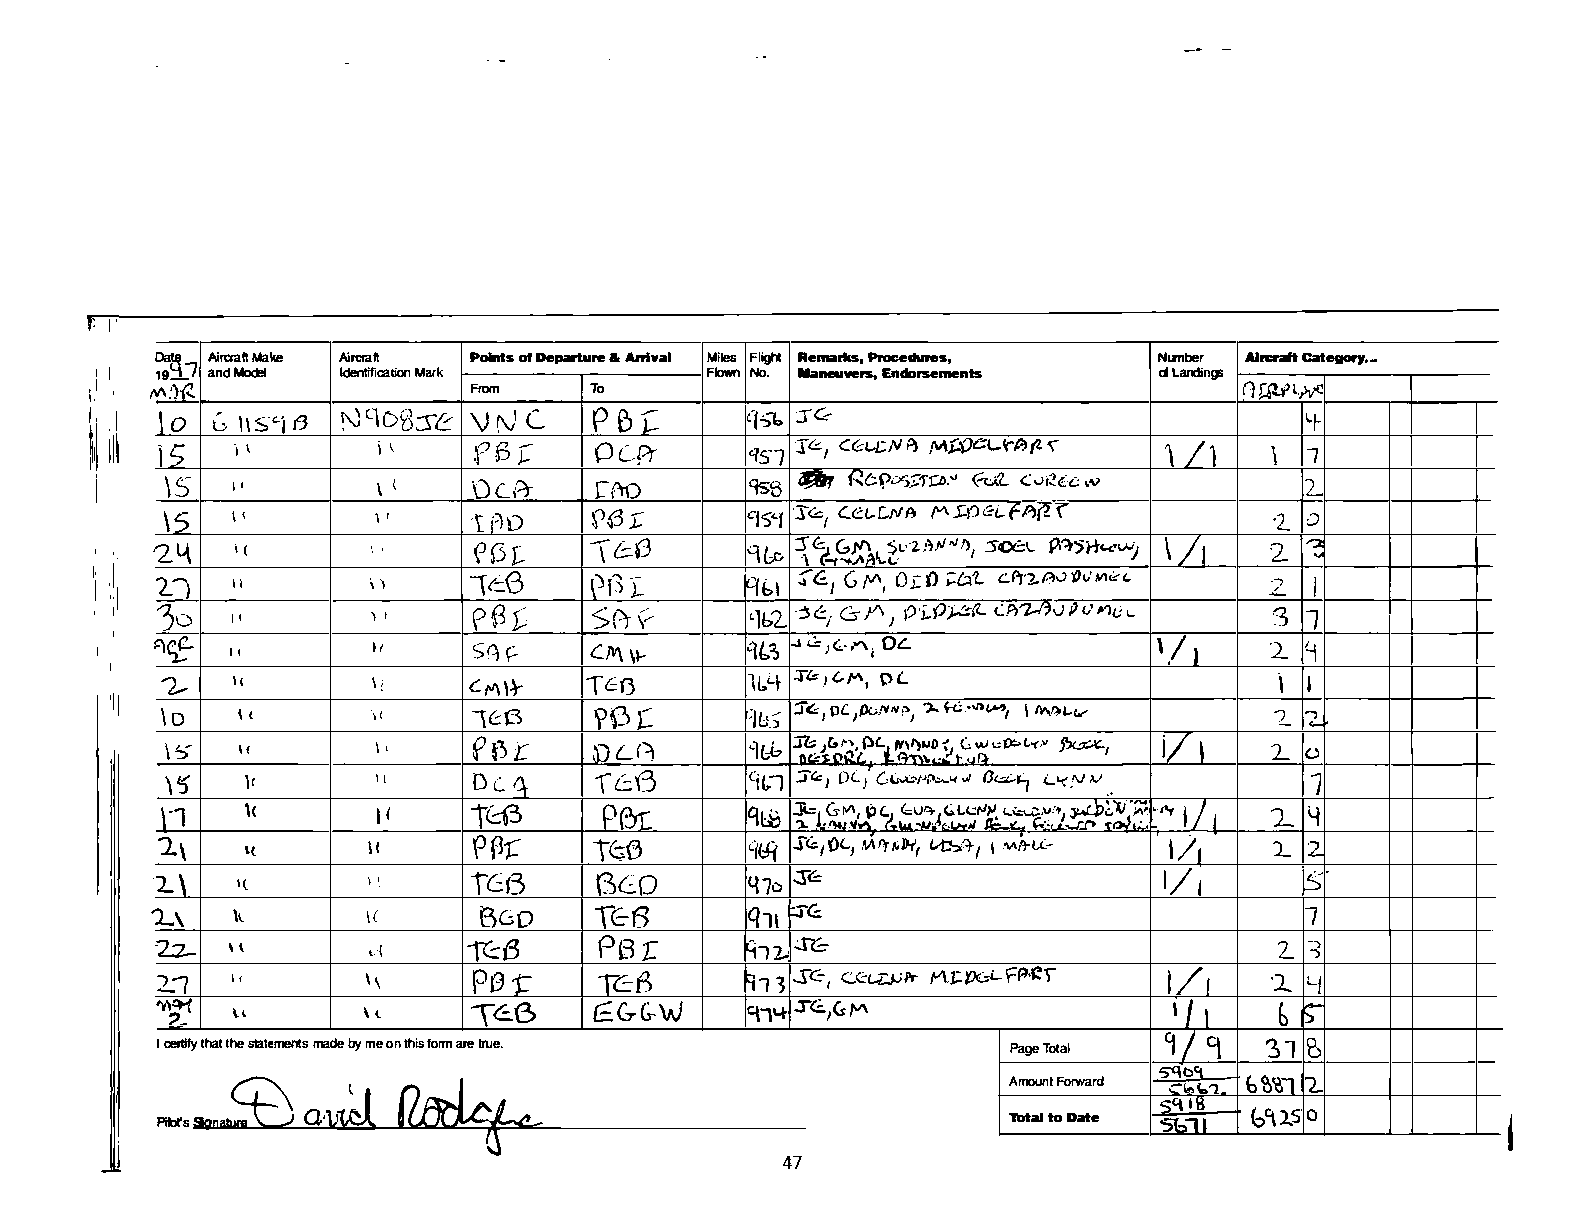 Date Aircraft Make Aircraft Points of Departure & Arrival Miles Flight Remarks, Procedures, Number Aircraft Category...
1997 and Model Identification Mark Flown No. Maneuvers, Endorsements of Landings
MAR From To AIRPLANE
10 G1159B N908JE VNC PBI 956 JE 4
15 " " PBI DCA 957 JE, CELINA MIDELFART 1/1 1 7
15 " " DCA IAD 958 REPOSITION FOR CURFEW 2
15 " " IAD PBI 959 JE, CELINA MIDELFART 2 0
24 " " PBI TEB 960 JE, GM, SUZANNA, JOEL PASHCOW, 1/1 2 3
1 FEMALE
27 " " TEB PBI 961 JE, GM, DIDIER CAZAUDUMEC 2 1
30 " " PBI SAF 962 JE, GM, DIDIER CAZAUDUMEC 3 7
APR
2 " " SAF CMH 963 JE, GM, DC 1/1 2 4
2 " " CMH TEB 964 JE, GM, DC 1 1
10 " " TEB PBI 965 JE, DC, DONNA, 2 FEMALES, 1 MALE 2 2
15 " " PBI DCA 966 JE, GM, DC, MANDY, GWEDOLYN BECK, 1/1 2 0
DEIDRE,
15 " " DCA TEB 967 JE, DC, GWENDOLYN BECK, LYNN 7
17 " " TEB PBI 968 JE, GM, DC, EVA, GLENN, 1/1 2 4
GWENDOLYN BECK,
21 " " PBI TEB 969 JE, DC, MANDY, LISA, 1 MALE 1/1 2 2
21 " " TEB BED 970 JE 1/1 5
21 " " BED TEB 971 JE 7
22 " " TEB PBI 972 JE 2 3
27 " " PBI TEB 973 JE, CELINA MIDELFART 1/1 2 4
MAY
2 " " TEB EGGW 974 JE, GM 1/1 6 5
I certify that the statements made by me on this form are true. Page Total 9/9 37 8
Amount Forward 5909 5662 6887 2
Pilot's Signature David Rodgers Total to Date 5918 5671 6925 0
47